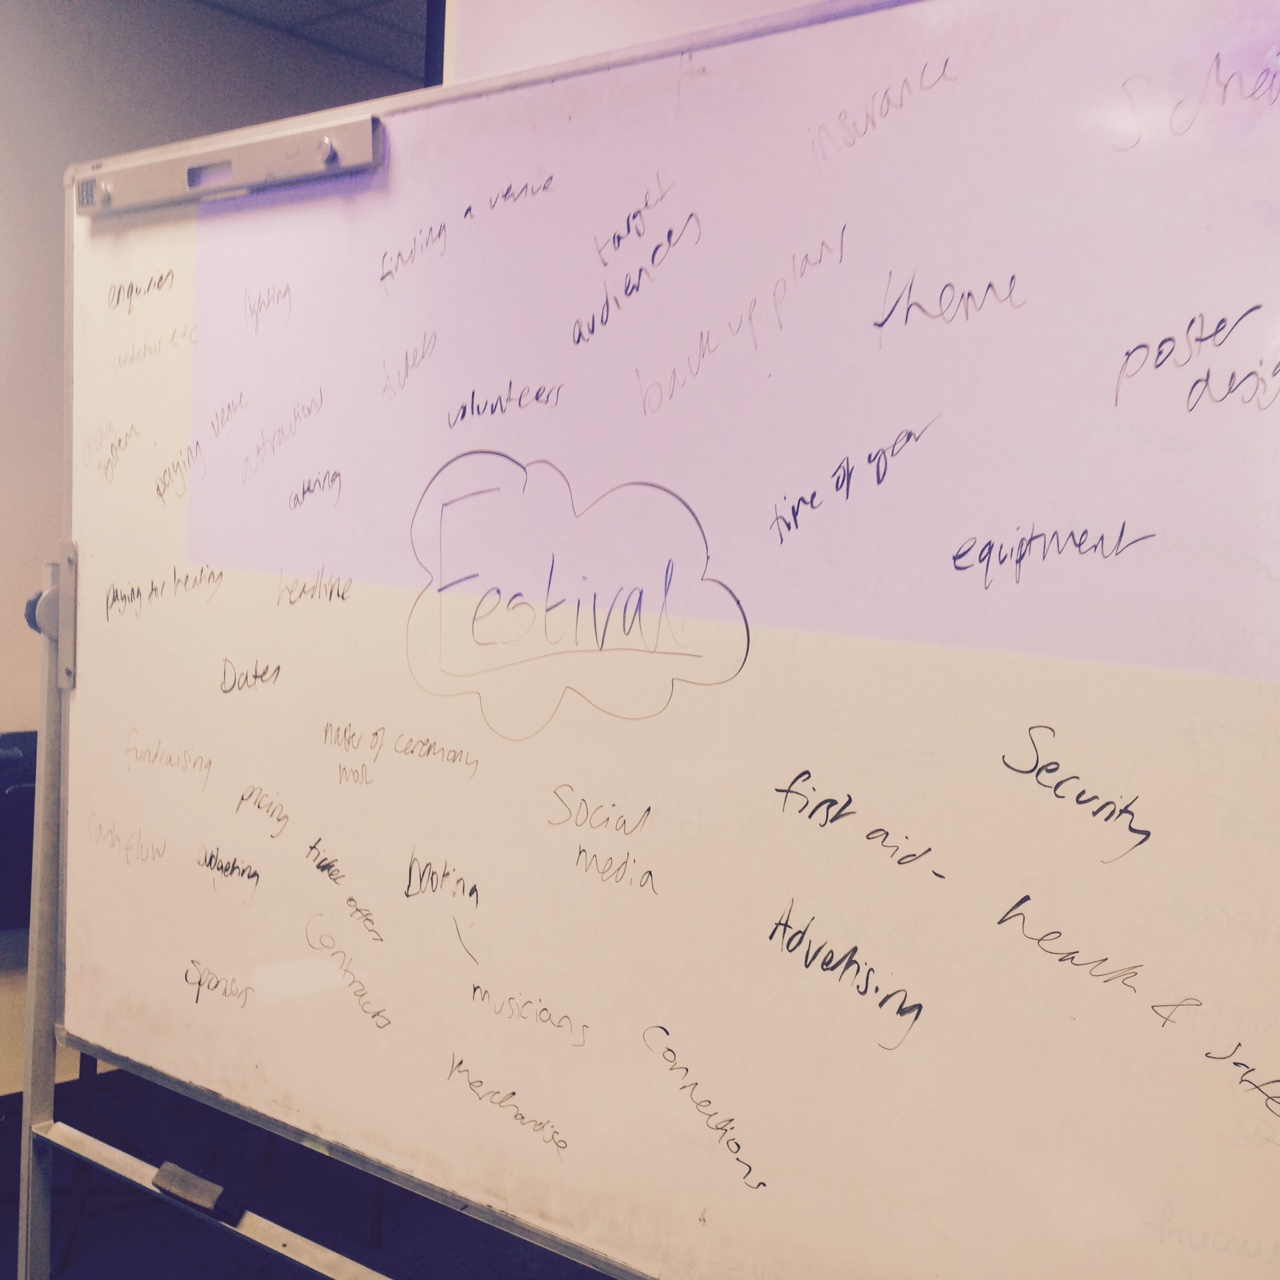 insurance
finding a venue
target
audiences
enquiries
lighting
back up plans
theme
tickets
poster
volunteers
venue
paying
attractions
system
catering
time of year
equiptment
Festival
paying for heating
headline
Dates
fundraising
master of ceremony
Security
pricing
Social
media
first aid -
health &
cashflow
budgeting
ticket offers
booking
Advertising
Contracts
sponsors
musicians
Connections
merchandise